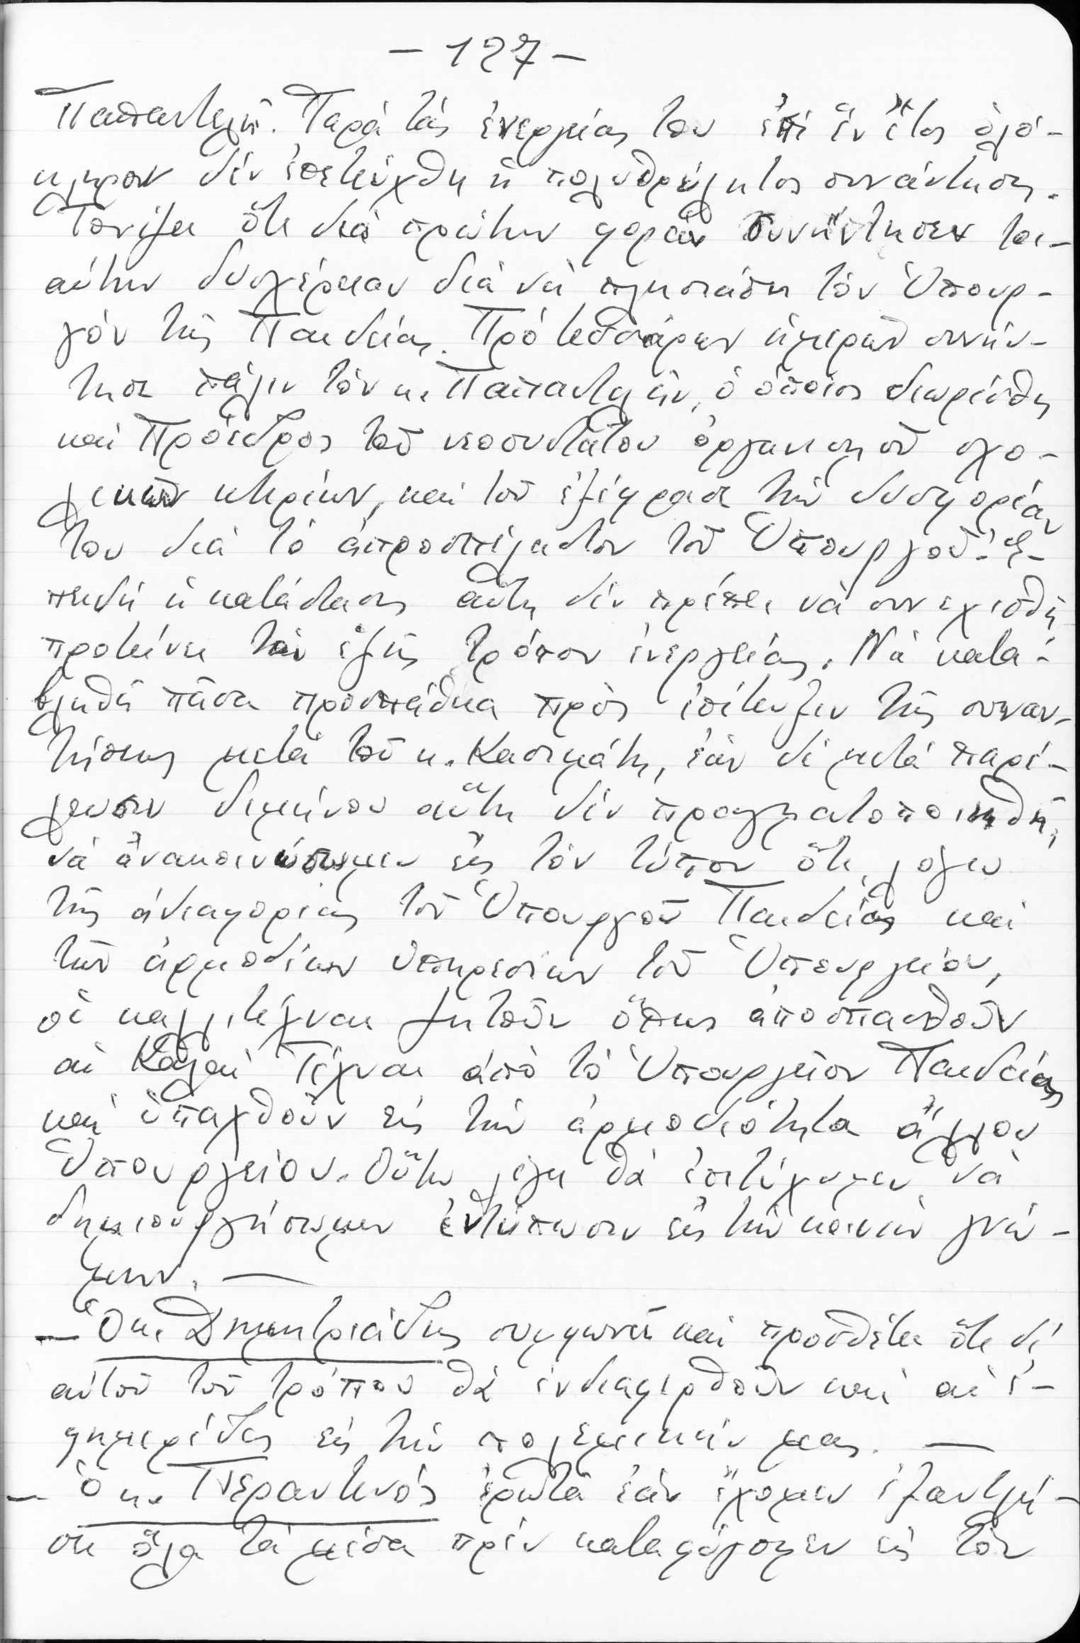 - 127 -
Παπαντελῆ. Παρά τάς ἐνεργείας του ἐπί ἕν ἔτος ὁλό-
κληρον δέν ἐπετεύχθη ἡ πολυθρύλητος συνάντησις.
Τονίζει ὅτι διά πρώτην φοράν συνήντησεν τοι-
αύτην δυσχέρειαν διά νά πλησιάση τόν Ὑπουρ-
γόν τῆς Παιδείας. Πρό τεσσάρων ἡμερῶν συνήν-
τησε πάλιν τόν κ. Παπαντελῆν, ὁ ὁποῖος διωρίσθη
καί Πρόεδρος τοῦ νεοσυστάτου ὀργανισμοῦ σχο-
λικῶν κτιρίων, καί τοῦ ἐξέφρασε τήν δυσφορίαν
του διά τό ἀπροσπέλαστον τοῦ Ὑπουργοῦ. Ἐ-
πειδή ἡ κατάστασις αὕτη δέν πρέπει νά συνεχισθῆ
προτείνει τόν ἑξῆς τρόπον ἐνεργείας. Νά κατα-
βληθῆ πᾶσα προσπάθεια πρός ἐπίτευξιν τῆς συναν-
τήσεως μετά τοῦ κ. Κασιμάτη, ἐάν δέ μετά παρέ-
λευσιν διμήνου αὕτη δέν πραγματοποιηθῆ,
νά ἀνακοινώσωμεν εἰς τόν τύπον ὅτι, λόγω
τῆς ἀδιαφορίας τοῦ Ὑπουργοῦ Παιδείας καί
τῶν ἁρμοδίων ὑπηρεσιῶν τοῦ Ὑπουργείου,
οἱ καλλιτέχναι ζητοῦν ὅπως ἀποσπασθοῦν
αἱ Καλαί Τέχναι ἀπό τό Ὑπουργεῖον Παιδείας
καί ὑπαχθοῦν εἰς τήν ἁρμοδιότητα ἄλλου
Ὑπουργείου. Οὕτω, λέγει θά ἐπιτύχωμεν νά
δημιουργήσωμεν ἐντύπωσιν εἰς τήν κοινήν γνώ-
μην. —
— Ὁ κ. Δημητριάδης συμφωνεῖ καί προσθέτει ὅτι δι'
αὐτοῦ τοῦ τρόπου θά ἐνδιαφερθοῦν καί αἱ ἐ-
φημερίδες εἰς τήν πολεμικήν μας. —
— Ὁ κ. Περαντινός ἐρωτᾶ ἐάν ἔχομεν ἐξαντλή-
σει ὅλα τά μέσα πρίν καταφύγομεν εἰς τόν